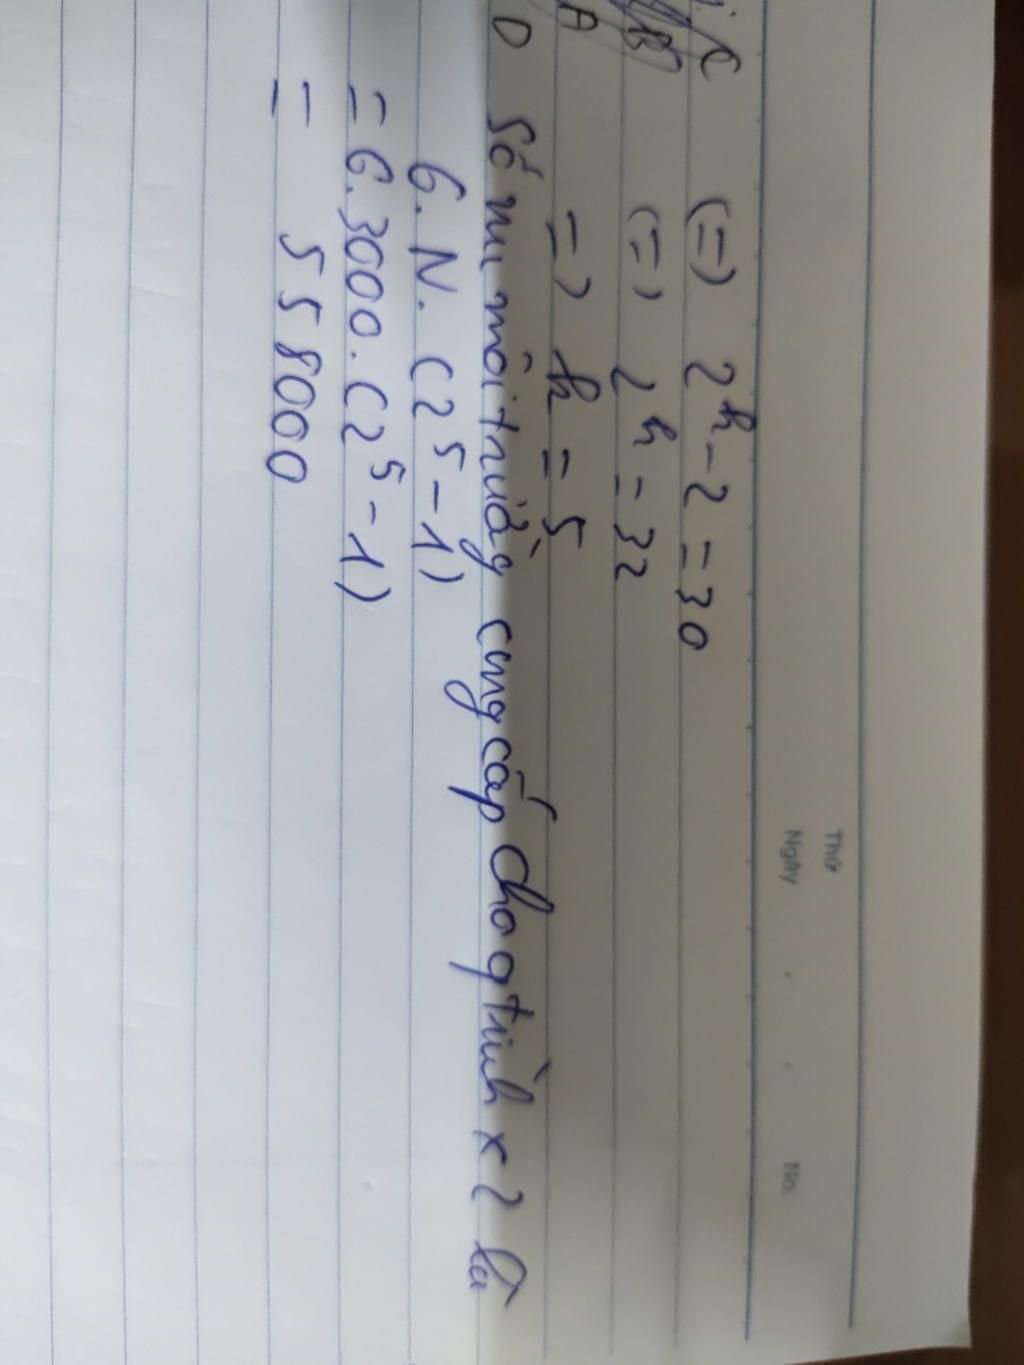 Thứ
Ngày . . No.
(=) 2^k - 2 = 30
(=) 2^k = 32
=) k = 5
số nu môi trường cung cấp cho qtrình x2 là
6. N. (2^5 - 1)
= 6. 3000. (2^5 - 1)
= 558000
C
B
A
D